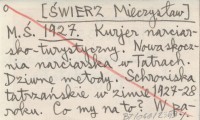 [ŚWIERZ Mieczysław]
M.Ś. 1927. Kurjer narciar-
sko-turystyczny. Nowa skocz-
nia narciarska w Tatrach.
Dziwne metody. Schroniska
tatrzańskie w zimie 1927-28
roku. Co my na to? W Za-